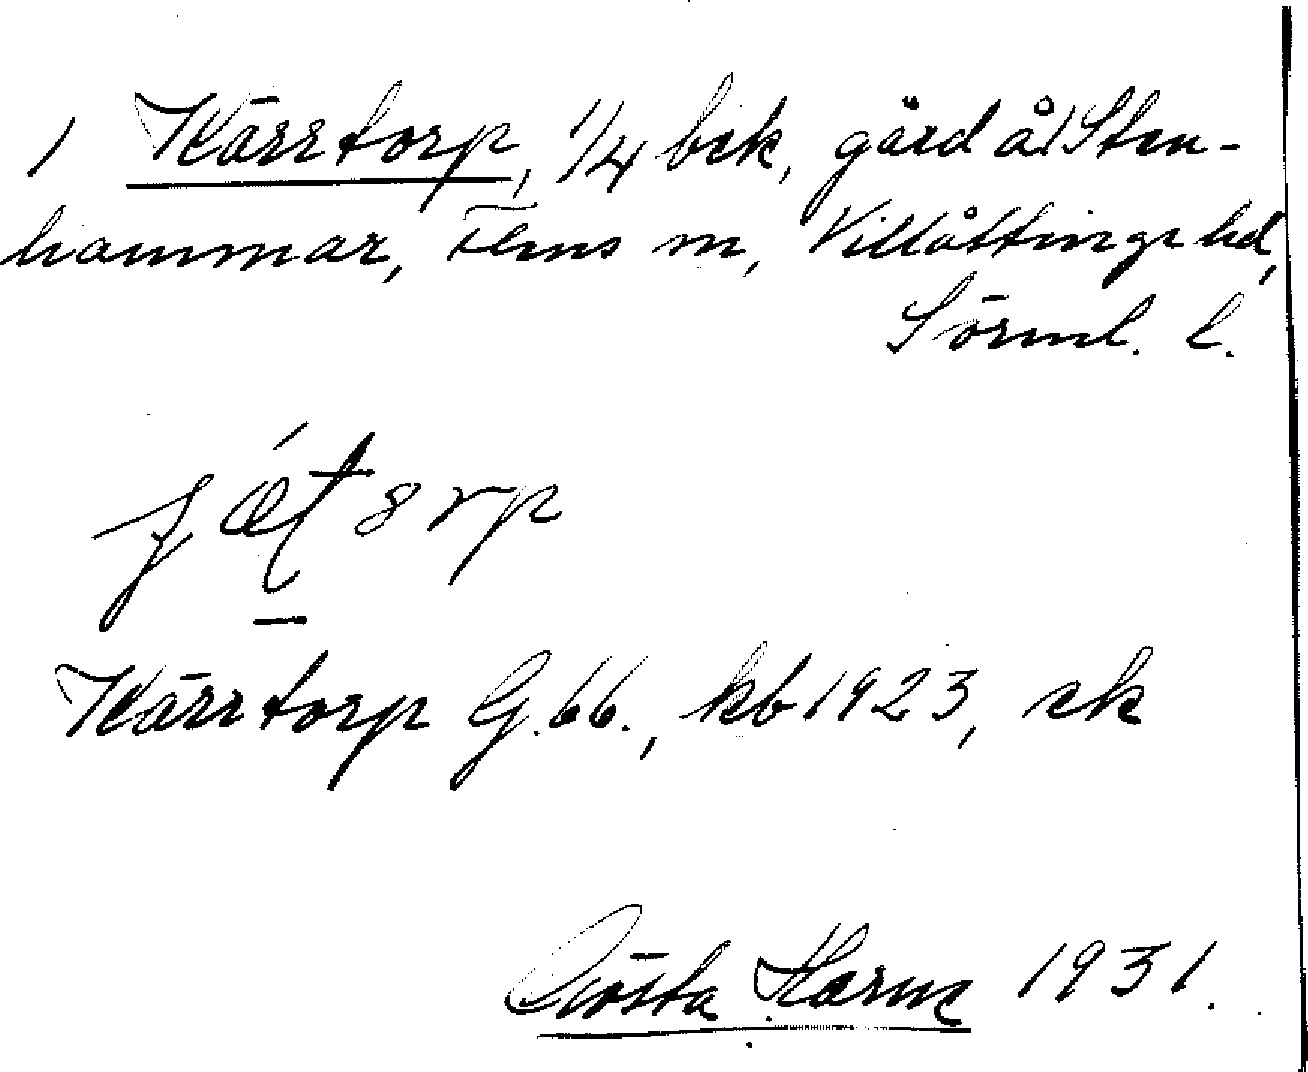 1 Kärrtorp, 1/4 bck, gård å Sten-
hammar, Flens sn, Villåttinge hd,
Sörml. l.
Kärrtorp G.66., kb 1923, sk
Gösta Harm 1931.